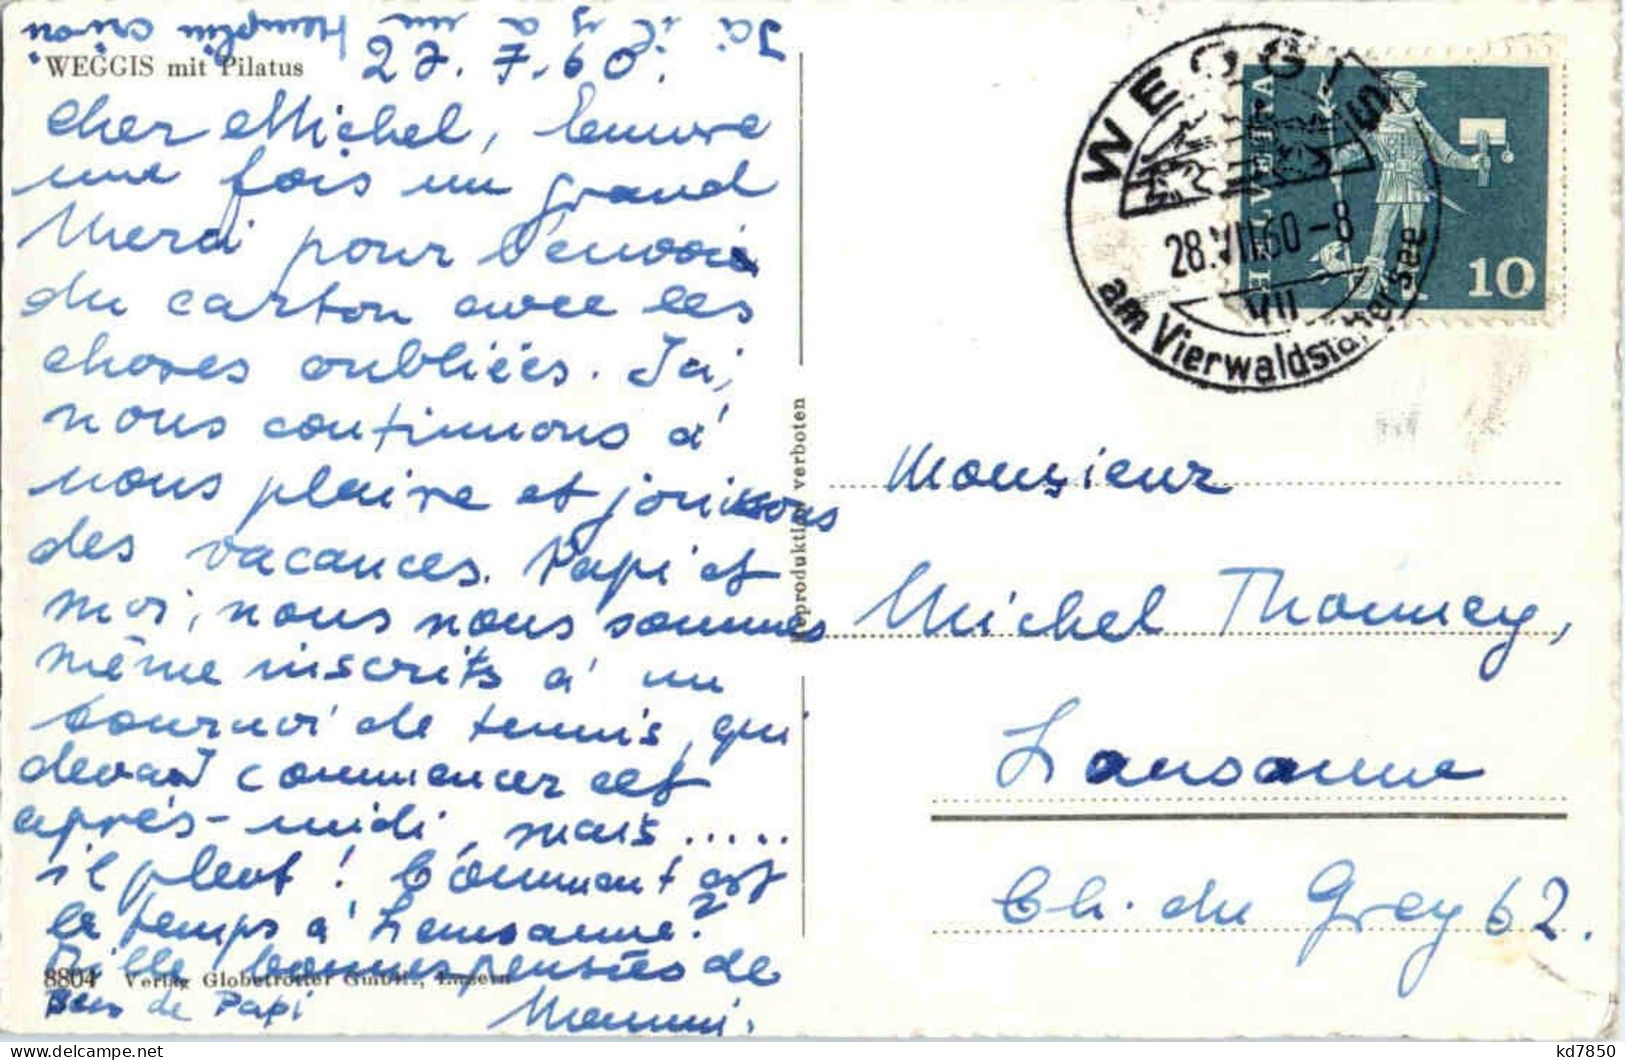 Ici il y a un
"WEGGIS mit Pilatus
27.7.60.
Cher Michel, encore
une fois un grand
Merci pour l'envoi
du carton avec les
choses oubliées. Ici,
nous continuons à
nous plaire et jouissons
des vacances. Papi et
moi, nous nous sommes
même inscrits à un
tournoi de tennis, qui
devait commencer cet
après-midi, mais.....
il pleut! Comment est
le temps à Lausanne?
Mille bonnes pensées de
8804 Verlag Globetrotter GmbH., Luzern
de Papi
Mammi.
Reproduktion verboten
WEGGIS
28.VII.60-8
VII
am Vierwaldstättersee
HELVETIA
10
Monsieur
Michel Thomney,
Lausanne
Ch. du Grey 62.
kd7850